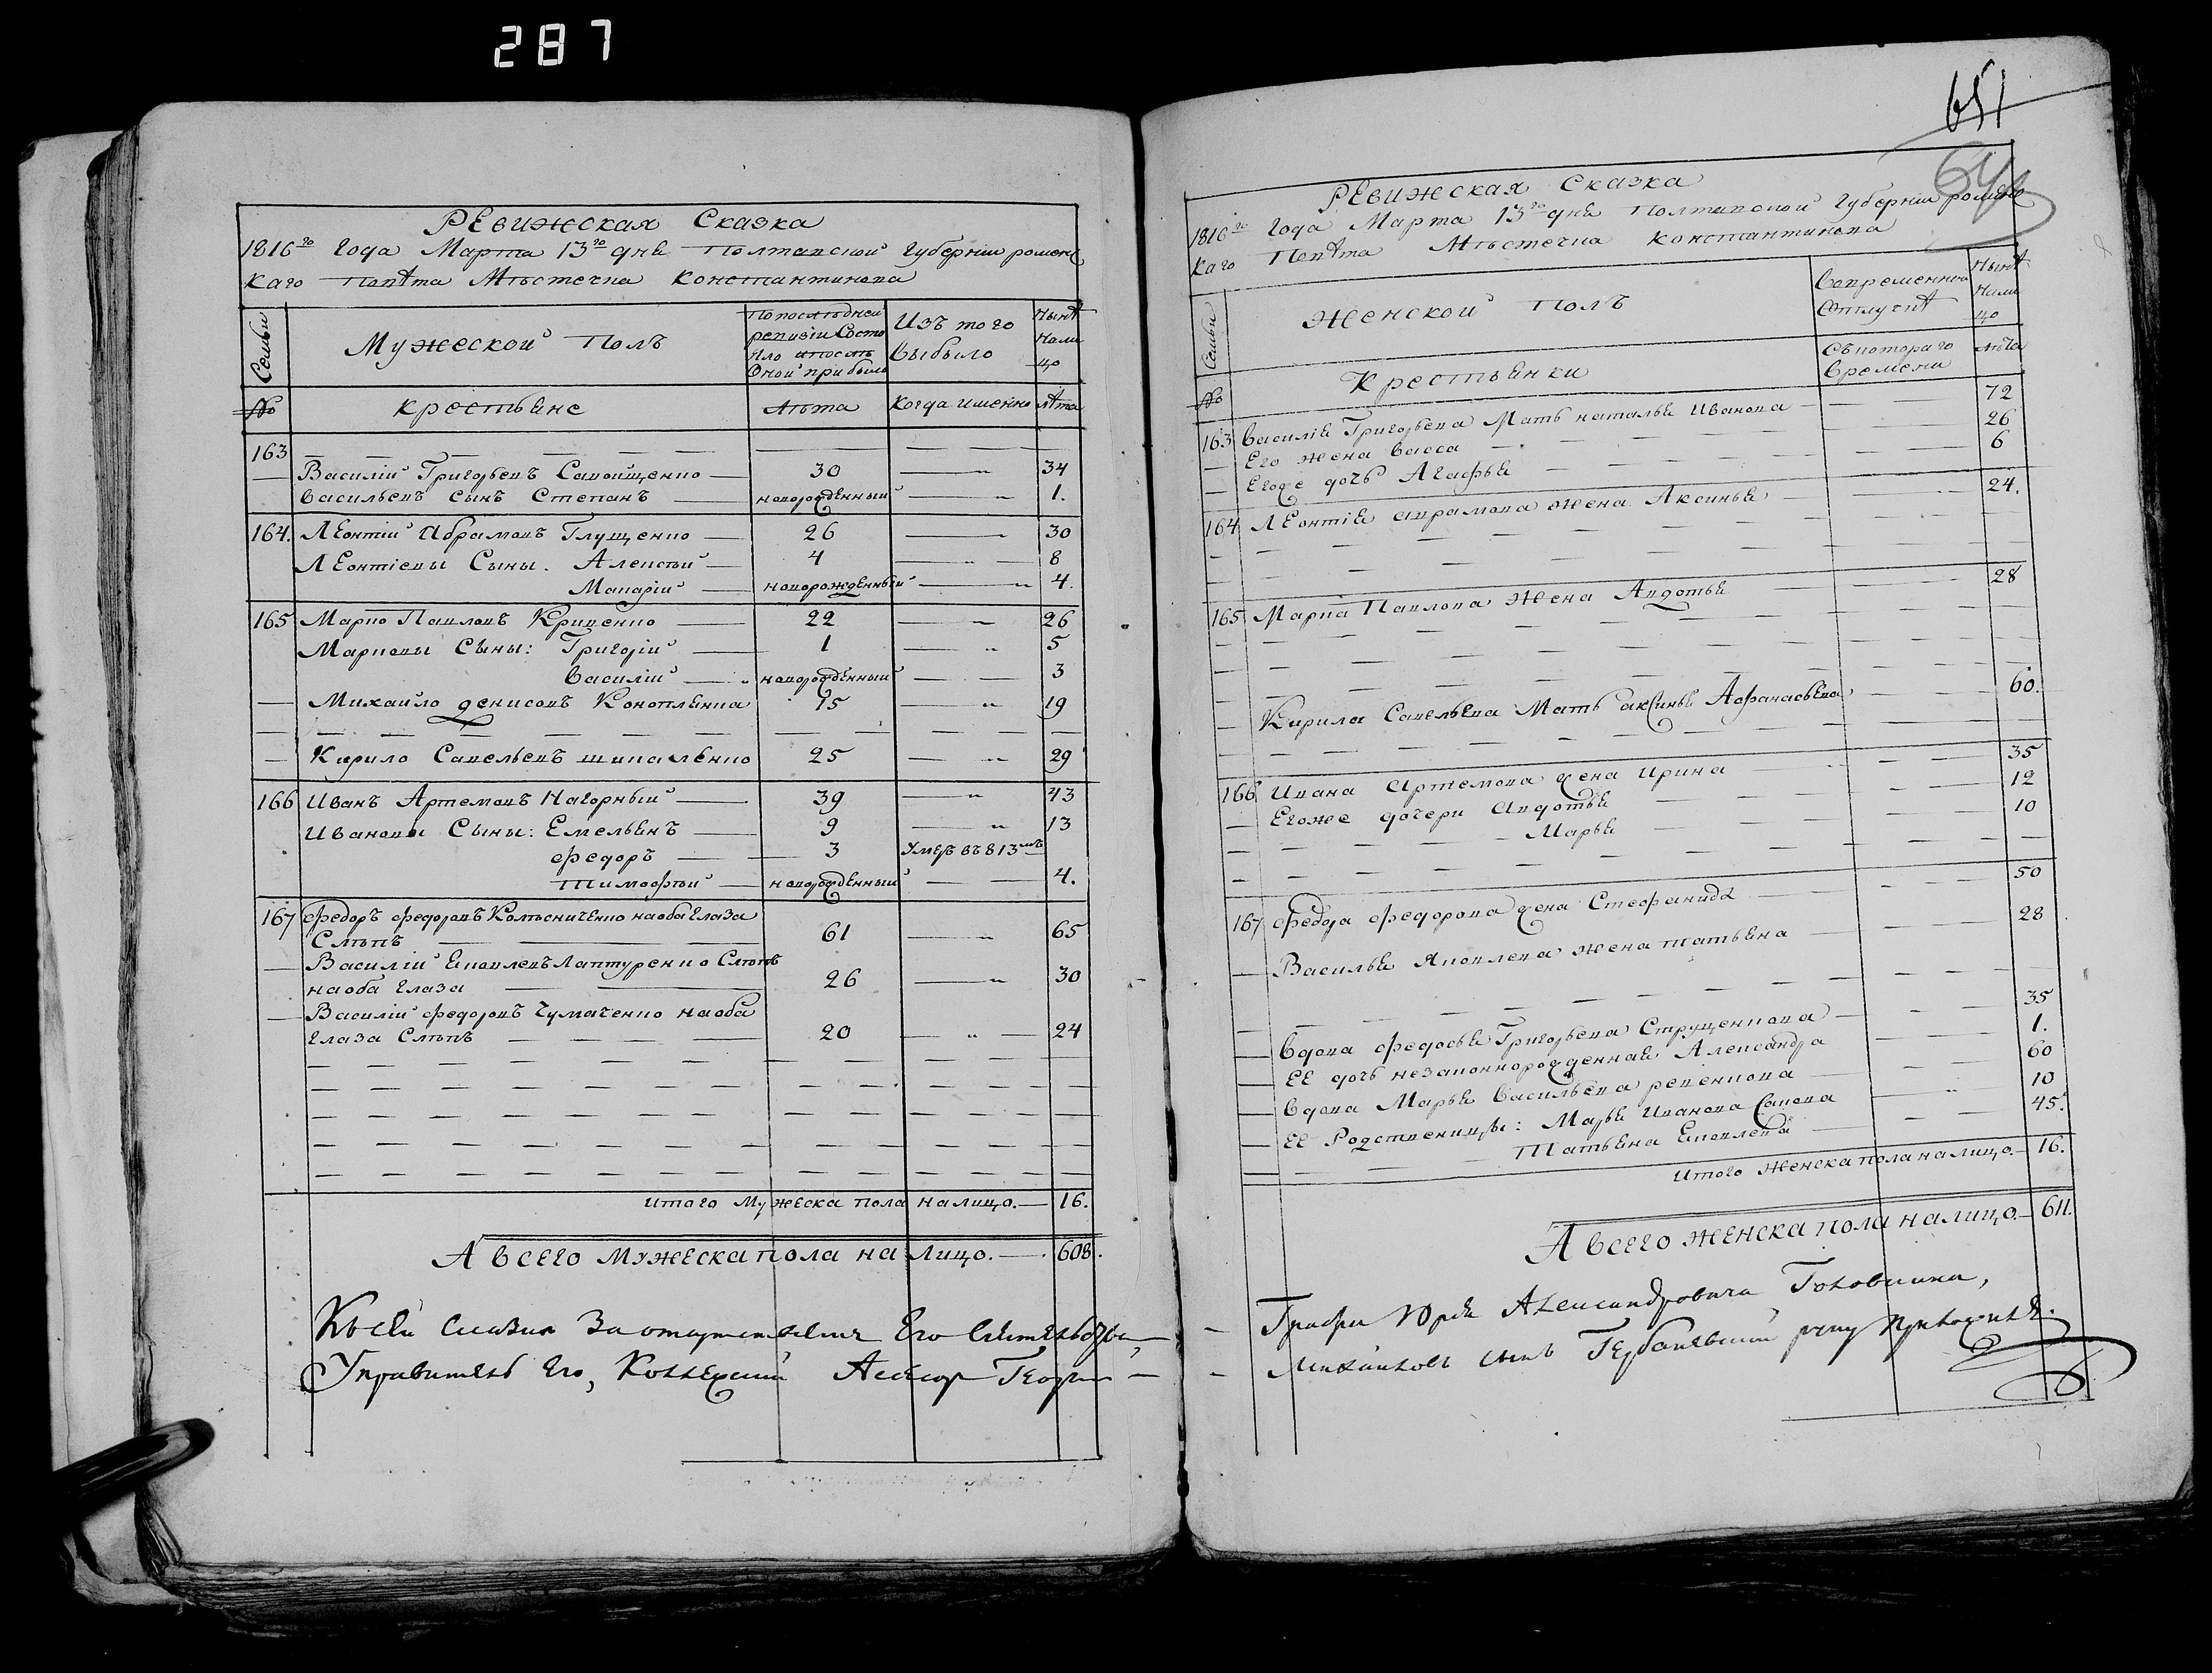 287
РЕвижская Сказка
1816го Года Марта 13го дня Полтавской Губерніи роменс
каго Повѣта Мѣстечка Константинова
Семьи
Мужеской Полъ
По последней
ревизіи Состо
яло и после
Оной прибыло
Изъ того
Выбыло
Нынѣ
На ли
цо
№ крестьяне лѣта Когда имянно лѣта
163
— Василій Григорьевъ Савойщенко — 30 — „ 34
Васильевъ сынъ Степанъ — новорожденный — „ 1.
164. Леонтій Абрамовъ Глущенко — 26 — 30
Леонтіевы Сыны. Алексѣй — 4 — „ — 8
Макарій — новорожденный — „ 4.
165 Марко Павловъ Кривенко — 22 — „ 26
Марковы Сыны: Григорій — 1 — „ 5
Василій — новорожденный — 3
— Михайло денисовъ Коноплянка 15 — „ 19
— Кирило Савельевъ шипиленко 25 — „ 29
166 Иванъ Артемовъ Нагорный — 39 — „ 43
Ивановы Сыны: Емельянъ — 9 — „ 13
федоръ — 3 Умеръ въ 813мъ
Тимофѣй — новорожденный — 4.
167 федоръ федоровъ Колѣсниченко на оба Глаза
Слѣпъ — 61 — „ 65
— Василій Яковлевъ Лаптуренко Слѣпъ
на оба Глаза — 26 — „ 30
— Василій федоровъ Чумаченко на оба
Глаза Слѣпъ — 20 — „ — 24
итого Мужеска пола на лицо. — 16.
А всего мужеска пола на лицо. — 608.
К сей сказки За отсутствіемъ Его Сіятельства,
Управитель Его, Коллежский Асесор Георги —
651
РЕвижская Сказка
1816го Года Марта 13го дня Полтавской Губерніи роменс
каго Повѣта Мѣстечка Константинова
Семьи
Женской Полъ
Вовременной
Отлучкѣ
Нынѣ
На ли
цо
№ Крестьянки
Съ котораго
Времени
лѣта
163 Василія Григорьева Мать наталья Иванова — 72
— Его жена васса — 26
— Егоже дочь Агафья — 6
164 Леонтія аврамова жена Аксинья — 24.
165 Марка Павлова Жена Авдотья — 28
— Кирила Савельева Мать аксинья Афанасьева 60.
166 Ивана Артемова жена Ирина 35
— Егоже дочери Авдотья 12
— Марья 10
167 федора федорова жена Стефанида 50
— Василья Яковлева жена татьяна 28
— вдова федосья Григорьева Струщенкова — 35
— ЕЕ дочь незаконнорожденная Александра 1.
— вдова Марья Васильева ревенкова 60
— ЕЕ Родственницы: Марья Иванова Савова 10
Татьяна Яковлева 45.
итого Женска пола на лицо. — 16.
А всего женска пола на лицо. — 611.
— Графа Юрия Александровича Головкина,
— сынъ руку приложилъ.